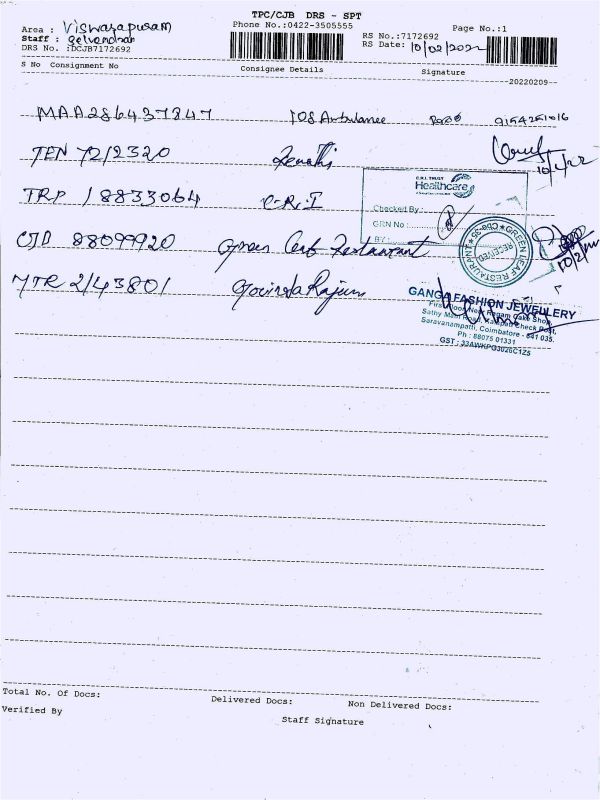 TPC/CJB DRS - SPT
Phone No.:0422-3505555
Area : Viswasapuram
Staff : Selvendran
DRS No. :DCJB7172692
RS No.:7172692
RS Date: 10/02/2022
Page No.:1
S No Consignment No Consignee Details Signature
20220209
MAA286437847 108 Ambulance 9154251016
TEN 72/2320 Revathi
TRP 18833064 C.R.I
CJD 88099920 Green Leaf Restaurant
MTR 2/43801 Govinda Rajum
C.R.I. TRUST
Healthcare
Checked By :
GRN No :
BY :
GREEN LEAF RESTAURANT ★ Cbe-35 ★
RECEIVED
10/2/22
GANGA FASHION JEWELLERY
First Floor, Near Ragam Cake Shop,
Sathy Main Road, Kalapati Check Post,
Saravanampatti, Coimbatore - 641 035.
Ph : 88075 01331
GST : 33AWKPG3026C1Z5
Total No. Of Docs: Delivered Docs: Non Delivered Docs:
Verified By Staff Signature